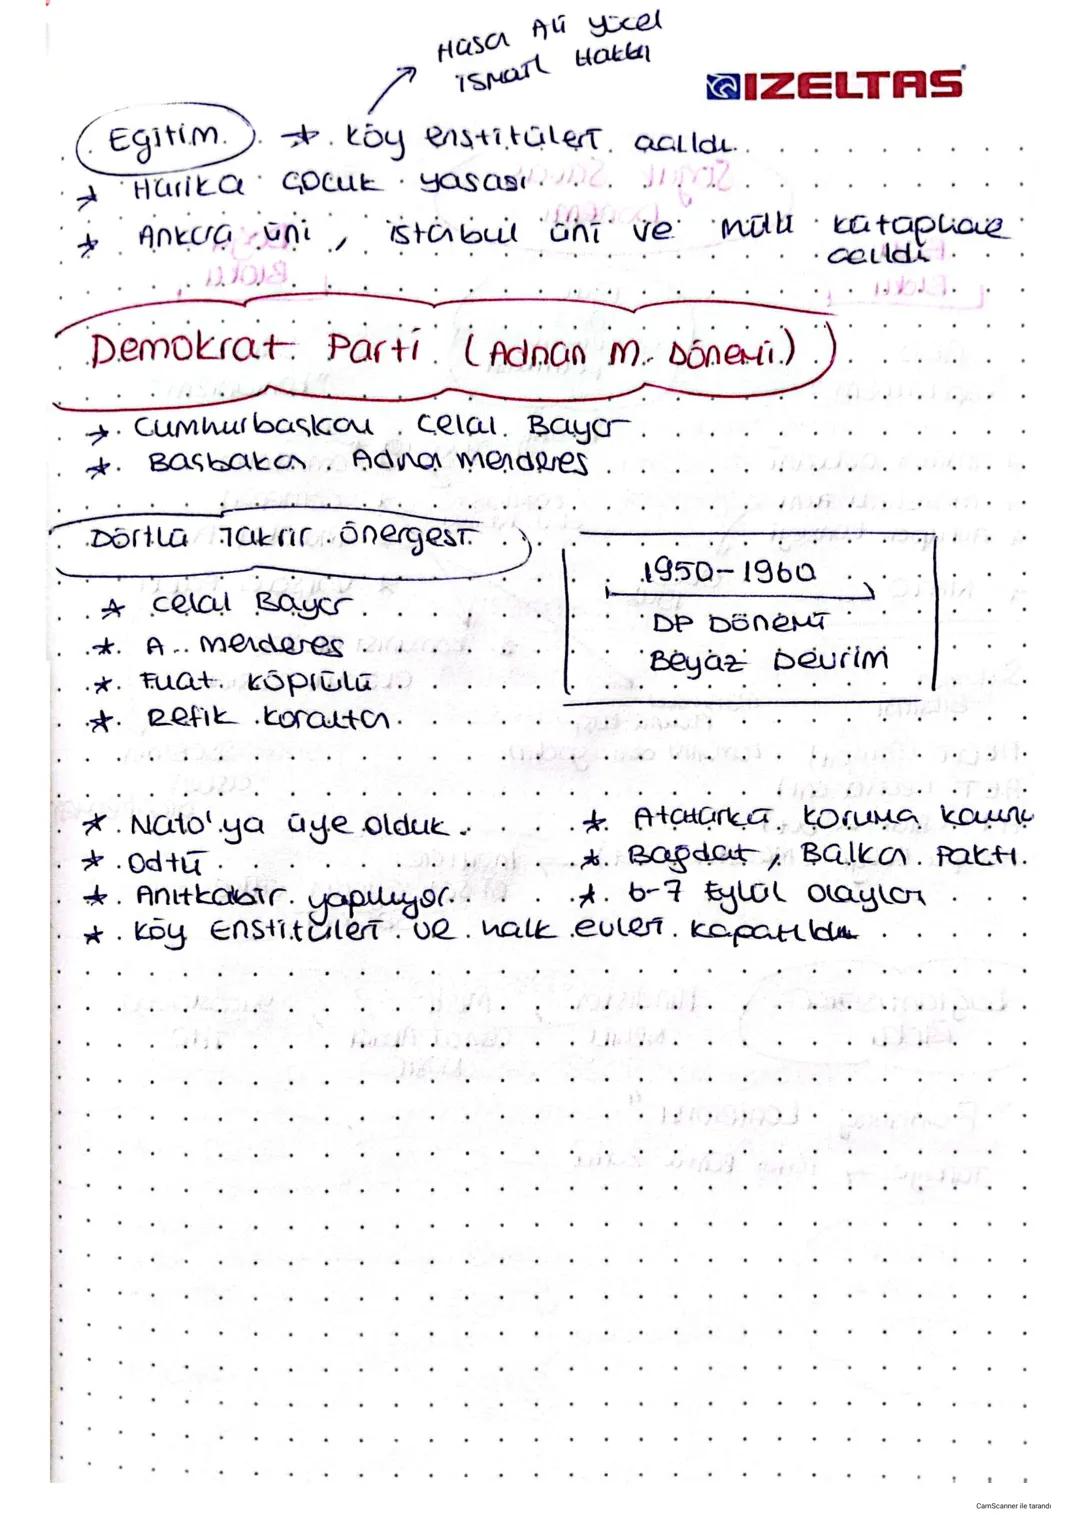 Hasan Ali Yücel
İsmail Hakkı
IZELTAŞ
Eğitim ★ Köy enstitüleri açıldı.
★ Harika çocuk yasası
★ Ankara üni, istanbul üni ve milli kütüphane
açıldı
Demokrat Parti (Adnan M. Dönemi)
★ Cumhurbaşkanı Celal Bayar
★ Başbakan Adnan menderes
Dörtlü Takrir önergesi
★ Celal Bayar
★ A. menderes
★ Fuat köprülü
★ Refik koraltan
1950-1960
DP Dönemi
Beyaz Devrim
★ Nato'ya üye olduk
★ Odtü
★ Anıtkabir yapılıyor
★ Köy Enstitüleri ve halk evleri kapatıldı
★ Atatürk'ü koruma kanunu
★ Bağdat, Balkan Paktı.
★ 6-7 Eylül olayları
CamScanner ile tarandı